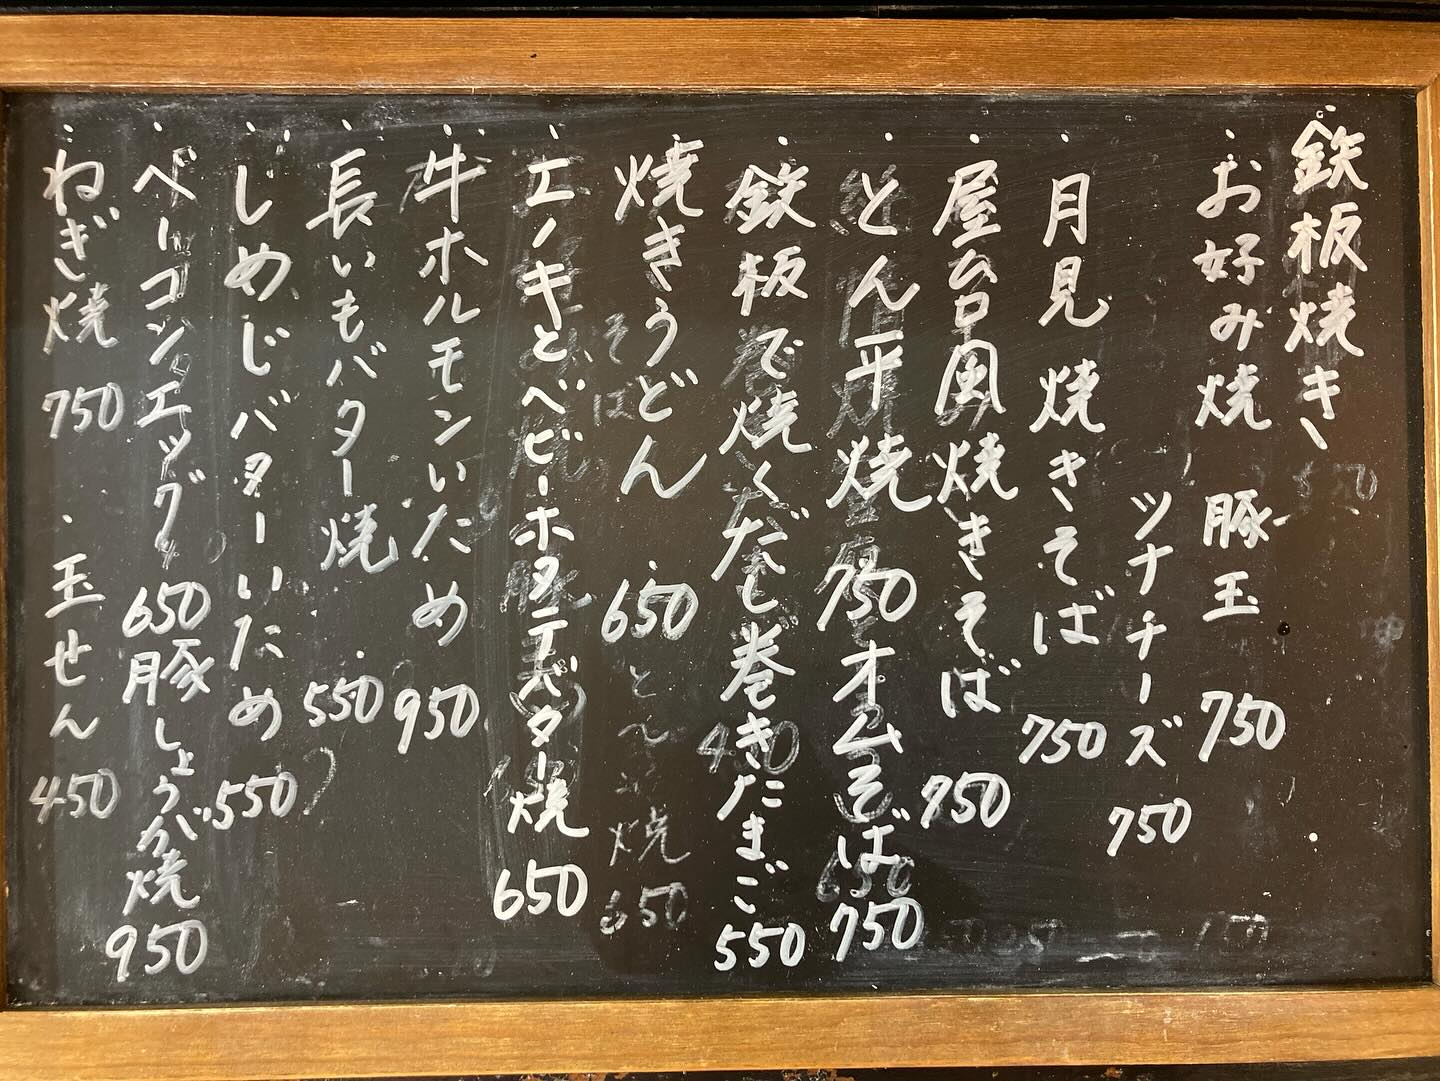 鉄板焼き
・お好み焼 豚玉 750
ツナチーズ 750
・月見焼きそば 750
・屋台風焼きそば 750
・とん平焼 750 オムそば 750
・鉄板で焼くだし巻きたまご 550
・焼きうどん 650
・エノキとベビーホタテバター焼 650
・牛ホルモンいため 950
・長いもバター焼 550
・しめじバターいため 550
・ベーコンエッグ 650 豚しょうが焼 950
・ねぎ焼 750 ・玉せん 450